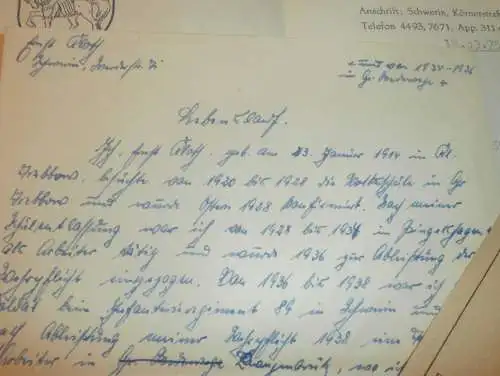 Anschrift: Schwerin, Körnerstraß
Telefon 4493, 7671, App. 313
Ernst
Schwerin,
und von 1934-1936
in Gr.
Lebenslauf.
Ich, Ernst geb. am 23. Januar 1914 in Kl.
Trebbow, besuchte von 1920 bis 1928 die Volksschule in Gr
Trebbow und wurde Ostern 1928 konfirmiert. Nach meiner
Schulentlassung war ich von 1928 bis 1934 in
als Arbeiter tätig und wurde 1936 zur Ableistung der
Wehrpflicht eingezogen. Von 1936 bis 1938 war ich
Soldat beim Infanterieregiment 89 in Schwerin und
nach Ableistung meiner Wehrpflicht 1938 im
Arbeiter in wo ich